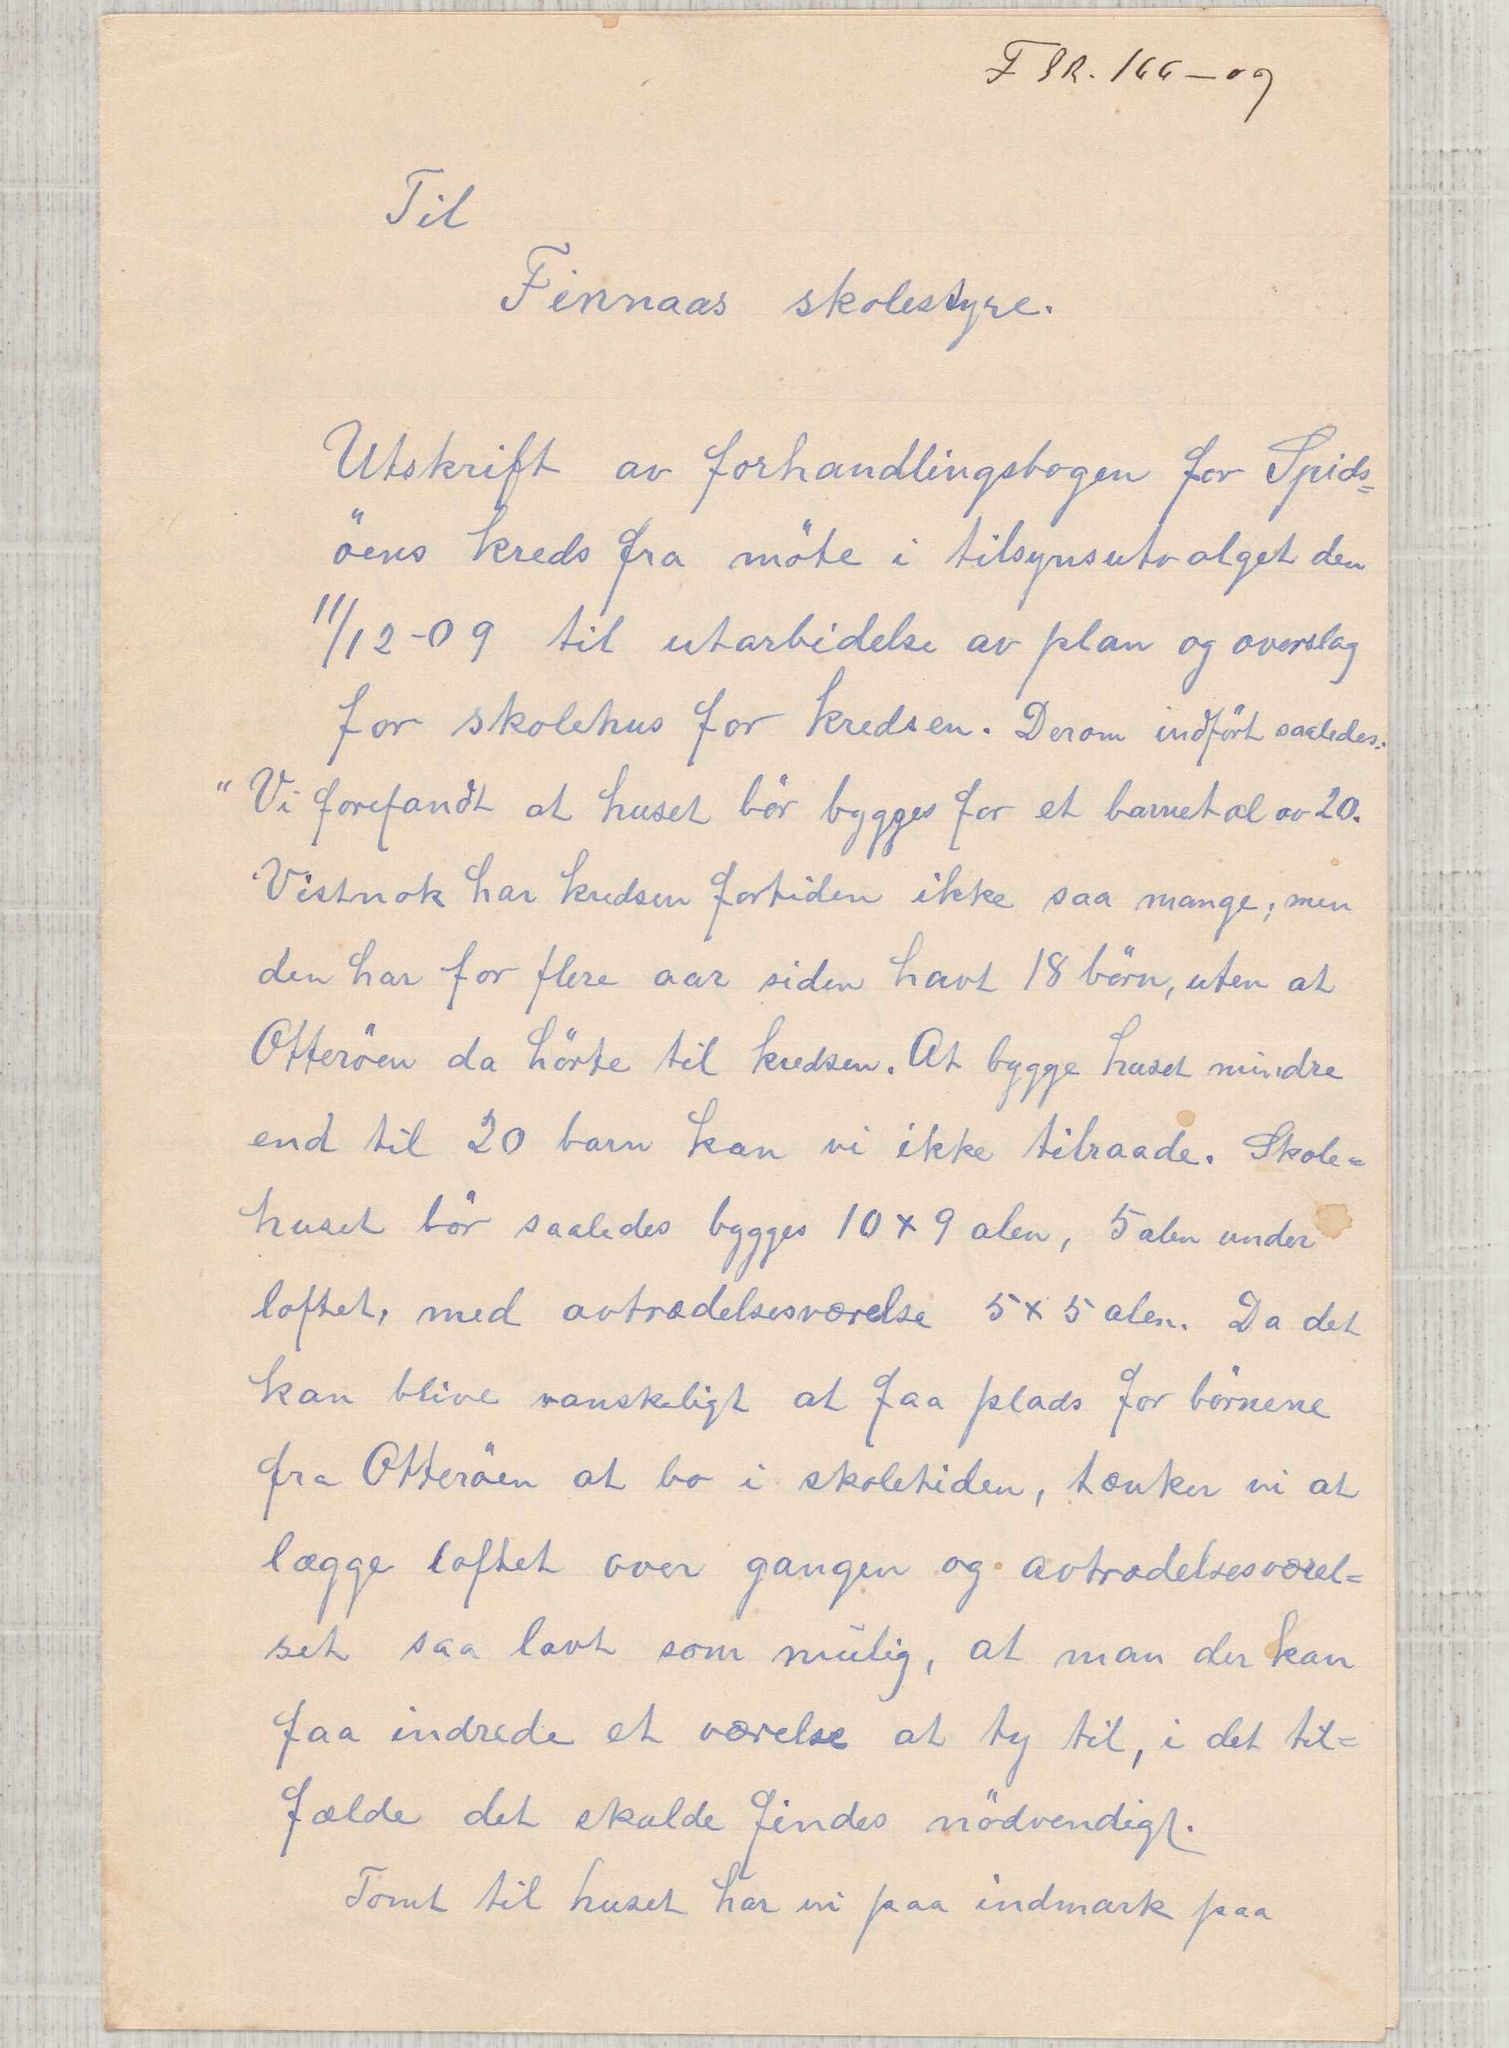 F Sk. 166-09
Til
Finnaas skolestyre.
Utskrift av forhandlingsbogen for Spids=
öens kreds fra möte i tilsynsutvalget den
11/12-09 til utarbidelse av plan og overslag
for skolehus for kredsen. Derom indfört saaledes:
"Vi forefandt at huset bör bygges for et barnetal av 20.
Vistnok har kredsen fortiden ikke saa mange, men
den har for flere aar siden havt 18 börn, uten at
Otteröen da hörte til kredsen. At bygge huset mindre
end til 20 barn kan vi ikke tilraade. Skole=
huset bör saaledes bygges 10 x 9 alen, 5 alen under
loftet, med avtrædelsesværelse 5 x 5 alen. Da det
kan blive vanskeligt at faa plads for börnene
fra Otteröen at bo i skoletiden, tænker vi at
lægge loftet over gangen og avtrædelsesværel=
set saa lavt som mulig, at man der kan
faa indrede et værelse at ty til, i det til=
fælde det skulde findes nödvendigt.
Tomt til huset har vi paa indmark paa